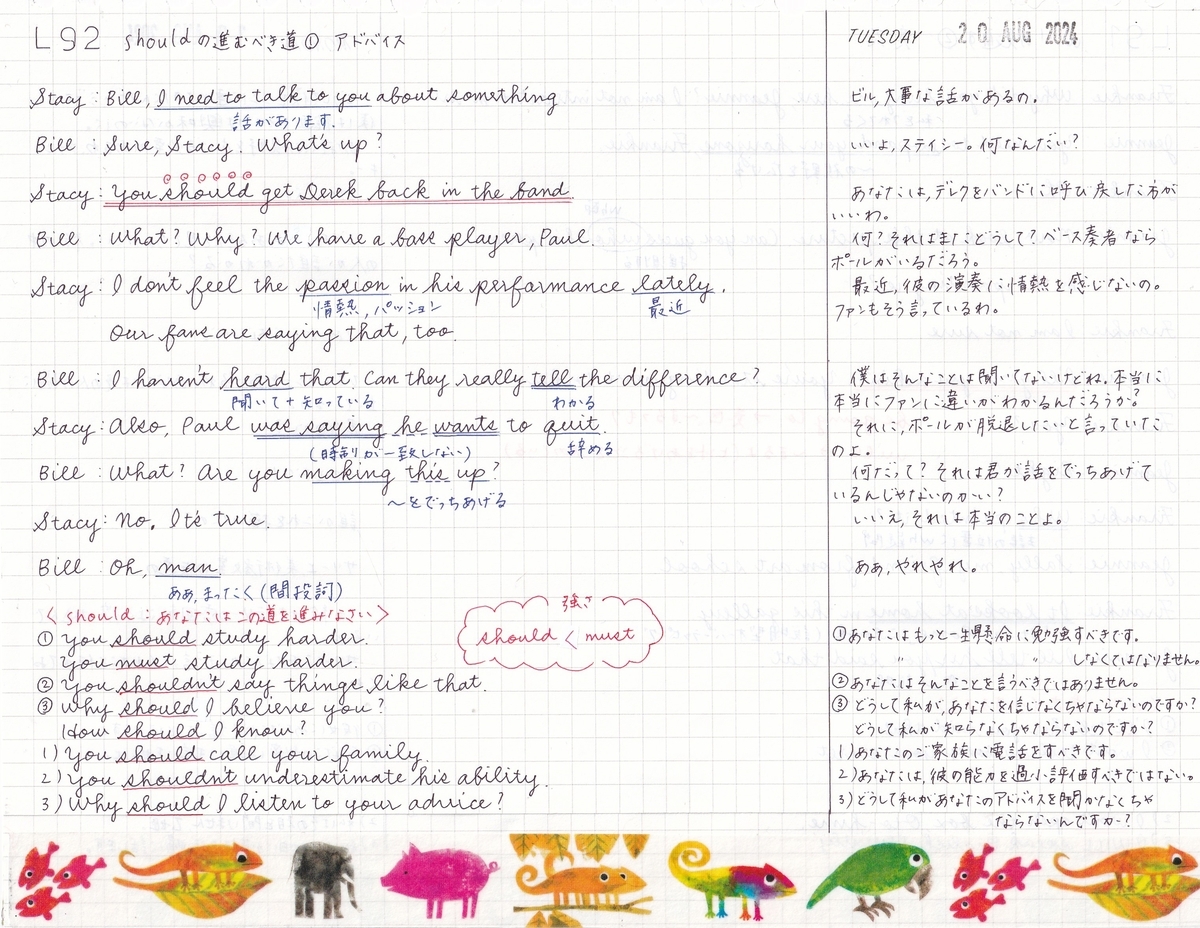 L92 shouldの進むべき道① アドバイス
TUESDAY 20 AUG 2024
Stacy : Bill, I need to talk to you about something
話があります.
ビル,大事な話があるの。
Bill : Sure, Stacy. What's up?
いいよ,ステイシー。何なんだい?
Stacy : You should get Derek back in the band.
あなたは,デレクをバンドに呼び戻した方が
いいわ。
Bill : What? Why? We have a bass player, Paul.
何?それはまたどうして?ベース奏者なら
ポールがいるだろう。
Stacy : I don't feel the passion in his performance lately.
情熱,パッション 最近
Our fans are saying that, too.
最近,彼の演奏に情熱を感じないの。
ファンもそう言っているわ。
Bill : I haven't heard that. Can they really tell the difference?
聞いて+知っている わかる
僕はそんなことは聞いてないけどね。本当に
本当にファンに違いがわかるんだろうか?
Stacy : Also, Paul was saying he wants to quit.
(時制が一致しない) 辞める
それに,ポールが脱退したいと言っていた
のよ.
Bill : What? Are you making this up?
〜をでっちあげる
何だって?それは君が話をでっちあげて
いるんじゃないのかい?
Stacy : No. It's true.
いいえ,それは本当のことよ。
Bill : Oh, man.
ああ,まったく(間投詞)
ああ,やれやれ。
〈 should : あなたはこの道を進みなさい 〉
強さ
should < must
① You should study harder.
①あなたはもっと一生懸命に勉強すべきです。
You must study harder.
〃 〃 しなくてはなりません。
② You shouldn't say things like that.
②あなたはそんなことを言うべきではありません。
③ Why should I believe you?
③ どうして私が,あなたを信じなくちゃならないのですか?
How should I know?
どうして私が知らなくちゃならないのですか?
1) You should call your family.
1)あなたのご家族に電話をすべきです。
2) You shouldn't underestimate his ability.
2)あなたは,彼の能力を過小評価すべきではない。
3) Why should I listen to your advice?
3)どうして私があなたのアドバイスを聞かなくちゃ
ならないんですか?